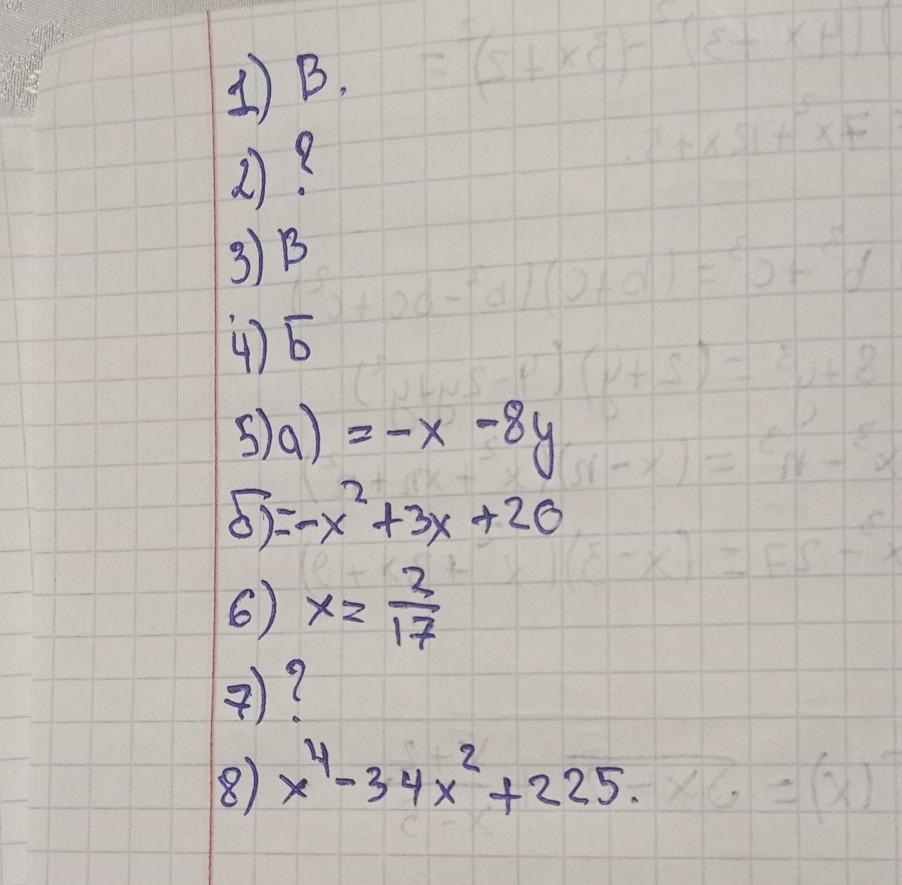 1) В.
2) ?
3) В
4) Б
5) а) = -x - 8y
б) = -x² + 3x + 20
6) x = 2/17
7) ?
8) x⁴ - 34x² + 225.